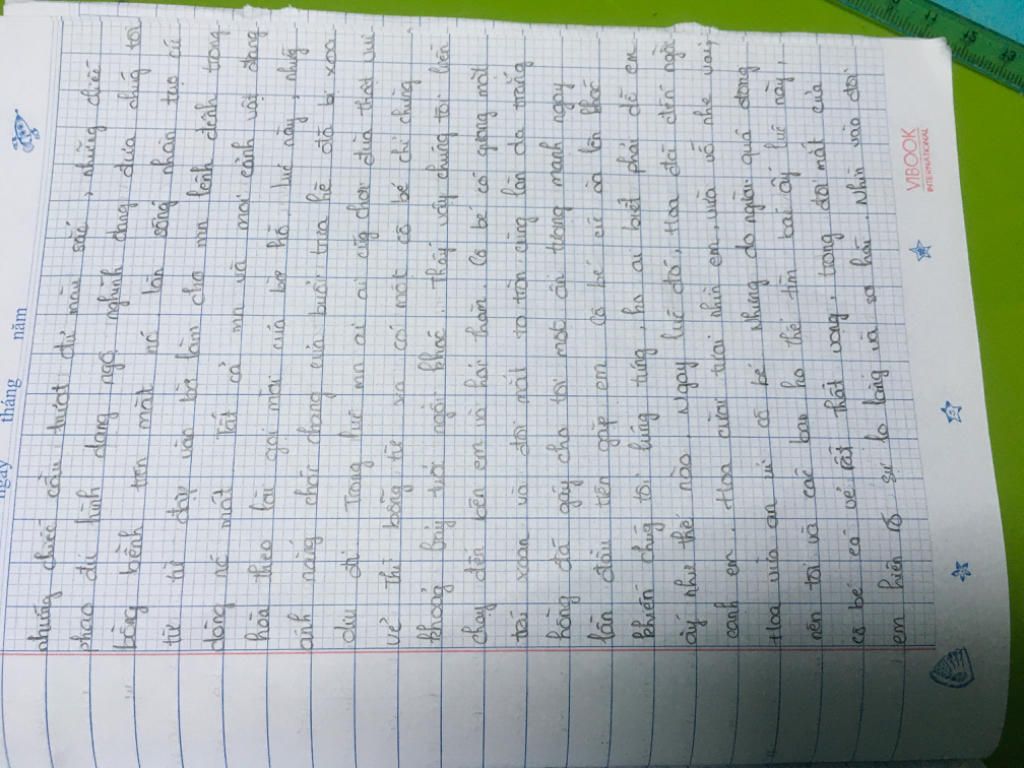 ngày tháng năm
những chiếc cầu trượt đủ màu sắc, những chiếc
phao đủ hình dạng ngộ nghĩnh đang đưa chúng tôi
bồng bềnh trên mặt nó, làn sóng nhân tạo cứ
từ từ đập vào bờ làm cho mn lênh đênh trong
dòng nc mát. Tất cả mn và mọi cảnh vật đang
hòa theo lời gọi mời của bờ hồ. Lúc này, những
ánh nắng chói chang của buổi trưa hè đã bị xoa
dịu đi. Trong lúc mn ai ai cũg chơi đùa thật vui
vẻ thì bỗng từ xa có một cô bé chỉ chừng
khoảg bảy tuổi ngồi khóc. Thấy vậy chúng tôi liền
chạy đến bên em và hỏi thăm. Cô bé có gương mặt
trái xoan và đôi mắt to tròn cùng làn da trắng
hồng đã gây cho tôi một ấn tượng mạnh ngay
lần đầu tiên gặp em. Cô bé cứ òa lên khóc
khiến chúg tôi lúng túng, ko ai biết phải dỗ em
ấy như thế nào. Ngay lúc đó, Hoa đã đến ngồi
cạnh em. Hoa cười tươi nhìn em, vừa vỗ nhẹ vai,
Hoa vừa an ủi cô bé. Nhưng do ngừi quá đông
nên tôi và các bạn ko thể tìm ba ấy lúc này,
cô bé có vẻ rất thất vọng, trong đôi mắt của
em hiện rõ sự lo lắng và sợ hãi. Nhìn vào đôi
VIBOOK
INTERNATIONAL